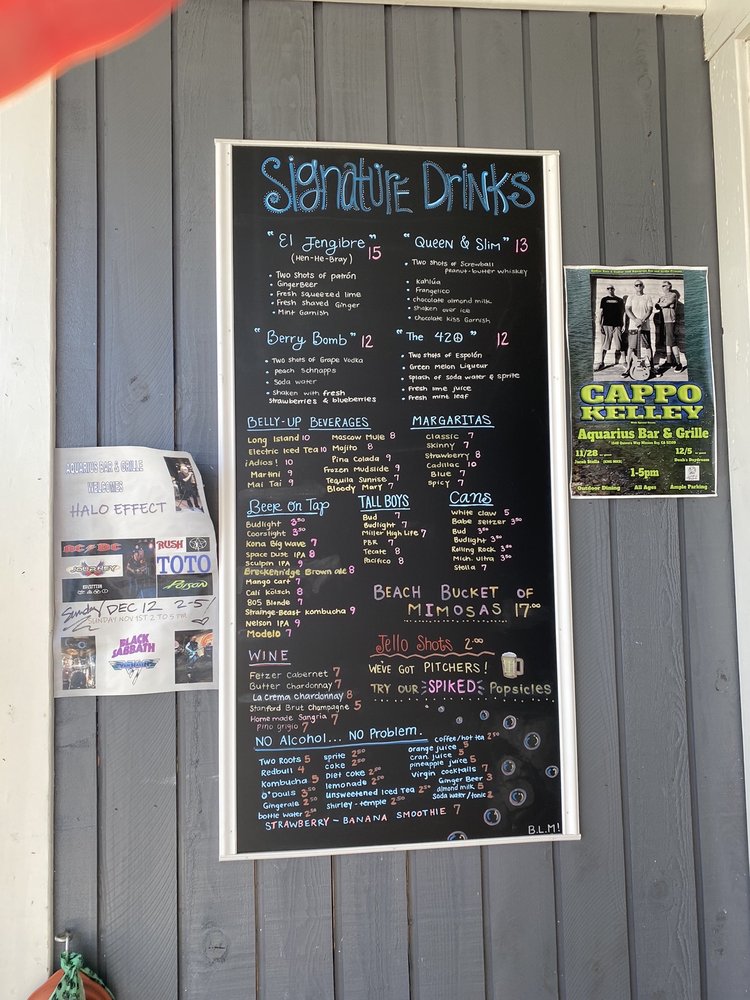 Signature Drinks
"El Jengibre" 15
(Hen-He-Bray)
• Two shots of patrón
• GingerBeer
• Fresh squeezed lime
• Fresh shaved Ginger
• Mint Garnish
"Queen & Slim" 13
• Two shots of Screwball
peanut-butter whiskey
• Kahlúa
• Frangelico
• chocolate almond milk
• shaken over ice
• chocolate kiss Garnish
"Berry Bomb" 12
• Two shots of Grape Vodka
• peach Schnapps
• Soda water
• shaken with fresh
strawberries & blueberries
"The 42☮" 12
• Two shots of Espolón
• Green Melon Liqueur
• splash of soda water & sprite
• Fresh lime juice
• Fresh mint leaf
Belly-Up Beverages
Long Island 10
Electric Iced Tea 10
¡Adios! 10
Martini 9
Mai Tai 9
Moscow Mule 8
Mojito 8
Pina Colada 9
Frozen Mudslide 9
Tequila Sunrise 7
Bloody Mary 7
Margaritas
Classic 7
Skinny 7
Strawberry 8
Cadillac 10
Blue 7
Spicy 7
Beer on Tap
Budlight 3⁵⁰
Coorslight 3⁵⁰
Kona Big wave 7
Space Dust IPA 8
Sculpin IPA 9
Breckenridge Brown ale 8
Mango Cart 7
Cali Kölsch 8
805 Blonde 7
Strainge-Beast Kombucha 9
Nelson IPA 9
Modelo 7
Tall Boys
Bud 7
Budlight 7
Miller High Life 7
PBR 7
Tecate 8
Pacifico 8
Cans
White Claw 5
Babe Seltzer 3⁵⁰
Bud 3⁵⁰
Budlight 3⁵⁰
Rolling Rock 3⁵⁰
Mich. Ultra 3⁵⁰
Stella 7
Beach Bucket of
Mimosas 17.⁰⁰
Jello Shots 2.⁰⁰
We've got pitchers!
Try our Spiked Popsicles
Wine
Fetzer Cabernet 7
Butter Chardonnay 7
La Crema chardonnay 8
Stanford Brut Champagne 5
Homemade Sangria 7
Pino grigio 7
No Alcohol... No Problem.
Two Roots 5
Redbull 4
Kombucha 5
O'Douls 3⁵⁰
Gingerale 2⁵⁰
bottle water 2⁵⁰
sprite 2⁵⁰
coke 2⁵⁰
Diet coke 2⁵⁰
lemonade 2⁵⁰
unsweetened Iced Tea 2⁵⁰
shirley-temple 2⁵⁰
Coffee/hot tea 2⁵⁰
orange juice 5
cran juice 5
pineapple juice 5
Virgin cocktails 7
Ginger Beer 3
almond milk 5
Soda water/tonic 2
Strawberry-Banana Smoothie 7
B.L.M!
AQUARIUS BAR & GRILLE
WELCOMES
HALO EFFECT
AC/DC
RUSH
JOURNEY
TOTO
LED ZEPPELIN
POISON
Sunday DEC 12 2-5!
SUNDAY NOV 1ST 2 TO 5 PM
BLACK
SABBATH
CAPPO
KELLEY
Aquarius Bar & Grille
11/28
12/5
1-5pm
Outdoor Dining All Ages Ample Parking